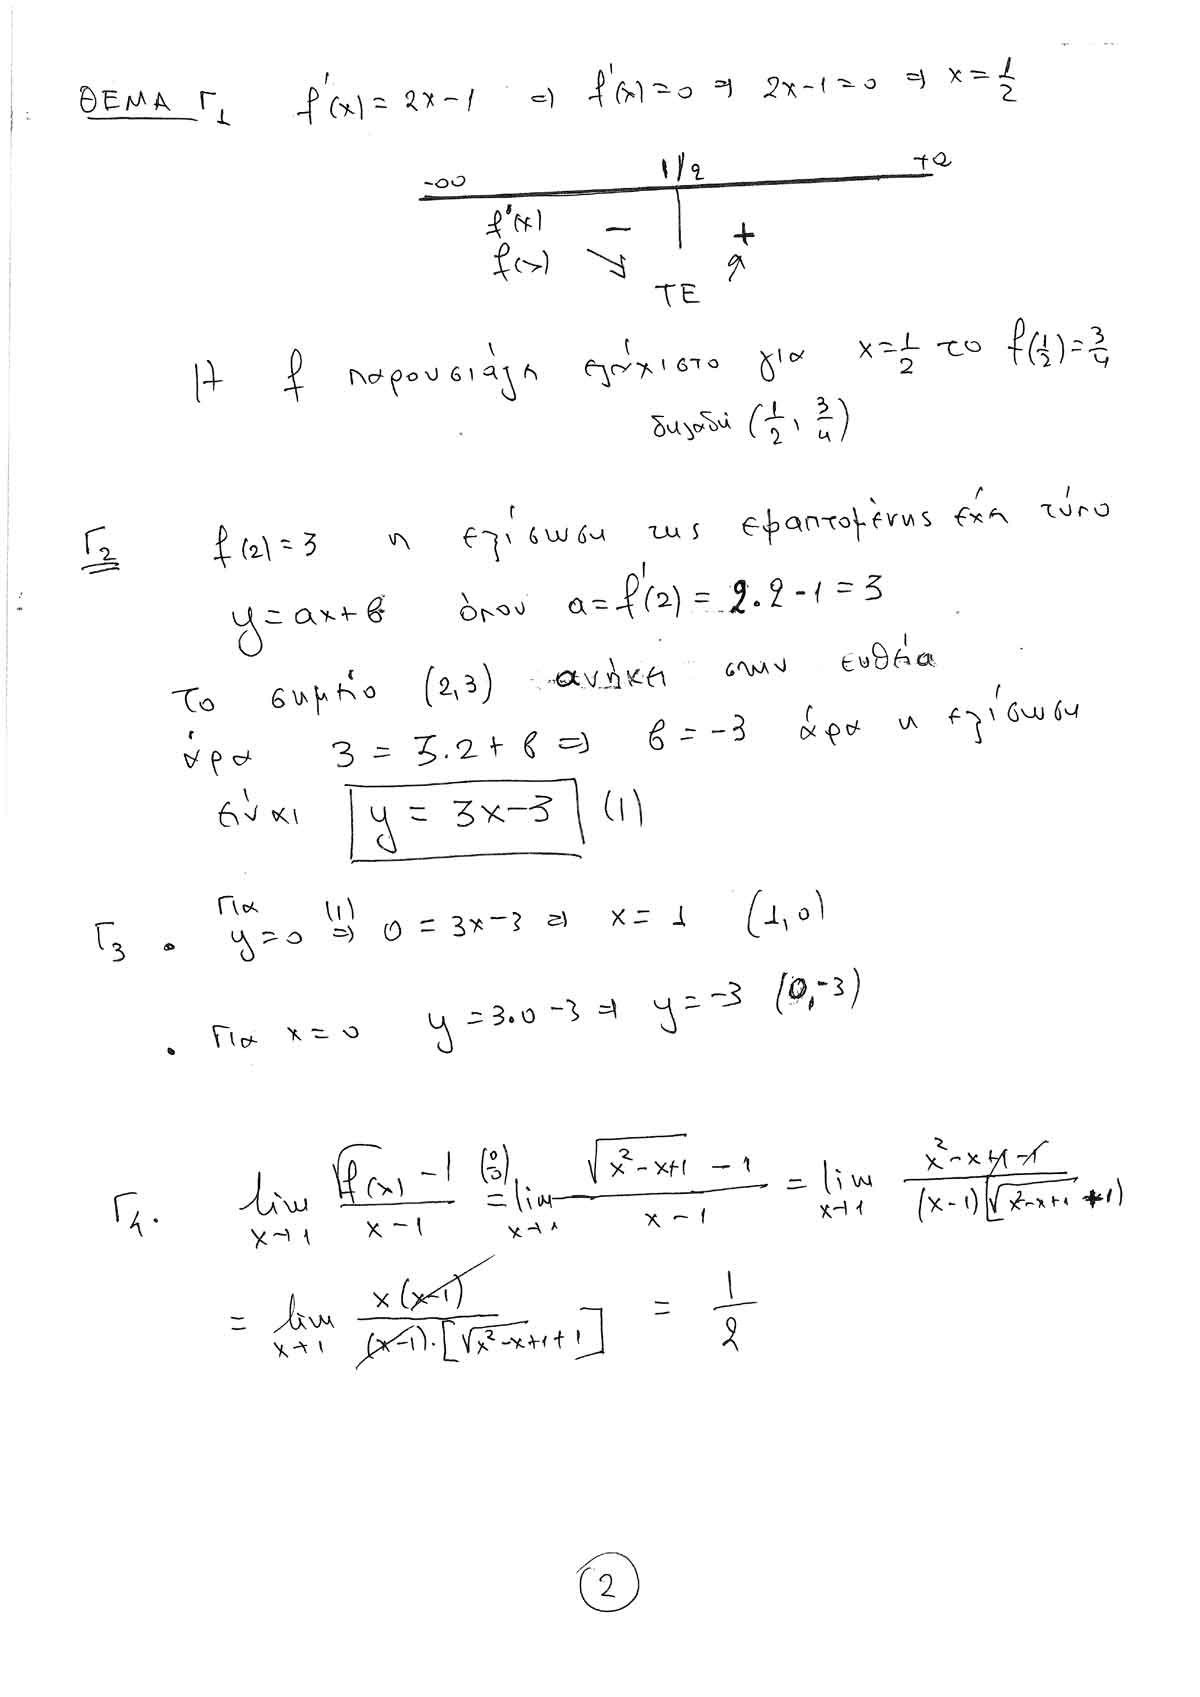 ΘΕΜΑ Γ1 f'(x) = 2x-1 ⇒ f'(x)=0 ⇒ 2x-1=0 ⇒ x=1/2
-∞ 1/2 +∞
f'(x) - +
f(x) ↘ ↗
ΤΕ
Η f παρουσιάζει ελάχιστο για x=1/2 το f(1/2)=3/4
δηλαδή (1/2, 3/4)
Γ2 f(2)=3 η εξίσωση της εφαπτομένης έχει τύπο
y=αx+β όπου α=f'(2)=2·2-1=3
Το σημείο (2,3) ανήκει στην ευθεία
άρα 3=3·2+β ⇒ β=-3 άρα η εξίσωση
είναι y=3x-3 (1)
Γ3 • Για y=0 (1)⇒ 0=3x-3 ⇒ x=1 (1,0)
• Για x=0 y=3·0-3 ⇒ y=-3 (0,-3)
Γ4. lim x→1 (√f(x) -1)/(x-1) (0/0)= lim x→1 (√x²-x+1 -1)/(x-1) = lim x→1 (x²-x+1-1)/((x-1)[√x²-x+1 +1)
= lim x→1 x(x-1)/((x-1)·[√x²-x+1+1]) = 1/2
2